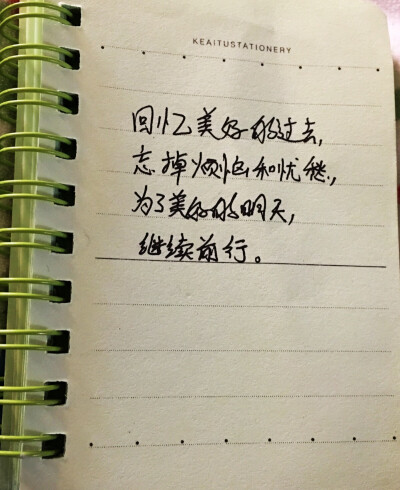 KEAITUSTATIONERY
回忆美好的过去,
忘掉烦恼和忧愁,
为了美好的明天,
继续前行。